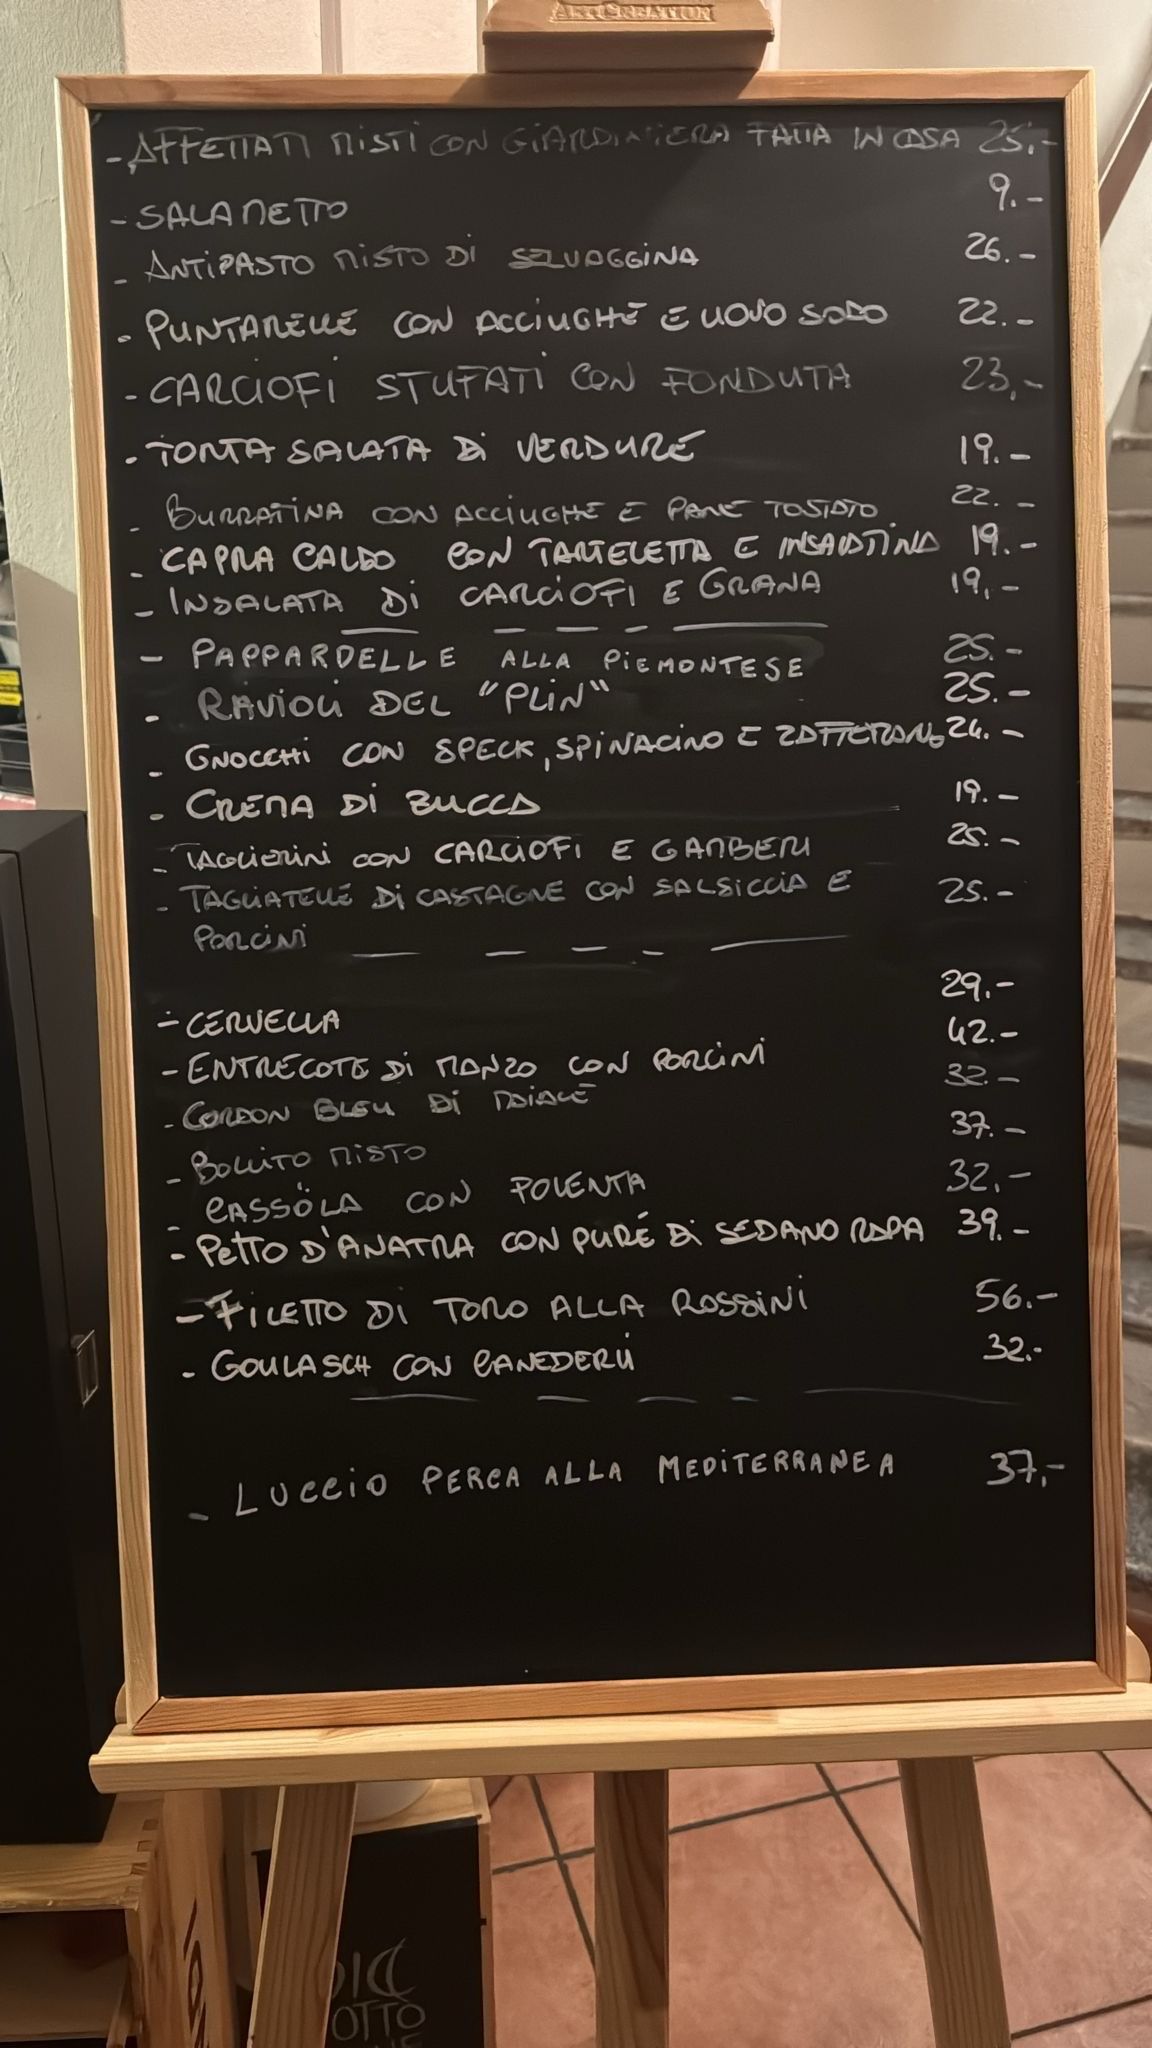 ARTCREATION
- AFFETTATI MISTI CON GIARDINIERA FATTA IN CASA 25.-
- SALAMETTO 9.-
- ANTIPASTO MISTO DI SELVAGGINA 26.-
- PUNTARELLE CON ACCIUGHE E UOVO SODO 22.-
- CARCIOFI STUFATI CON FONDUTA 23.-
- TORTA SALATA DI VERDURE 19.-
- BURRATINA CON ACCIUGHE E PANE TOSTATO 22.-
- CAPRA CALDO CON TARTELETTA E INSALATINA 19.-
- INSALATA DI CARCIOFI E GRANA 19.-
- PAPPARDELLE ALLA PIEMONTESE 25.-
- RAVIOLI DEL "PLIN" 25.-
- GNOCCHI CON SPECK, SPINACINO E ZAFFERANO 24.-
- CREMA DI ZUCCA 19.-
- TAGLIERINI CON CARCIOFI E GAMBERI 25.-
- TAGLIATELLE DI CASTAGNE CON SALSICCIA E 25.-
PORCINI
- CERVELLA 29.-
- ENTRECOTE DI MANZO CON PORCINI 42.-
- CORDON BLEU DI MAIALE 32.-
- BOLLITO MISTO 37.-
- CASSÖLA CON POLENTA 32.-
- PETTO D'ANATRA CON PURÉ DI SEDANO RAPA 39.-
- FILETTO DI TORO ALLA ROSSINI 56.-
- GOULASCH CON CANEDERLI 32.-
- LUCCIO PERCA ALLA MEDITERRANEA 37.-
OTTO